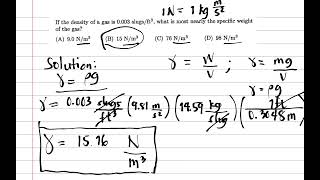 1 N = 1 kg m/s²
If the density of a gas is 0.003 slugs/ft³, what is most nearly the specific weight
of the gas?
(A) 9.0 N/m³ (B) 15 N/m³ (C) 76 N/m³ (D) 98 N/m³
Solution:
γ = ρg
γ = W/V ; γ = mg/V
γ = ρg
γ = 0.003 slugs/ft³ (9.81 m/s²) (14.59 kg/slug) (1ft/0.3048m)
γ = 15.16 N/m³